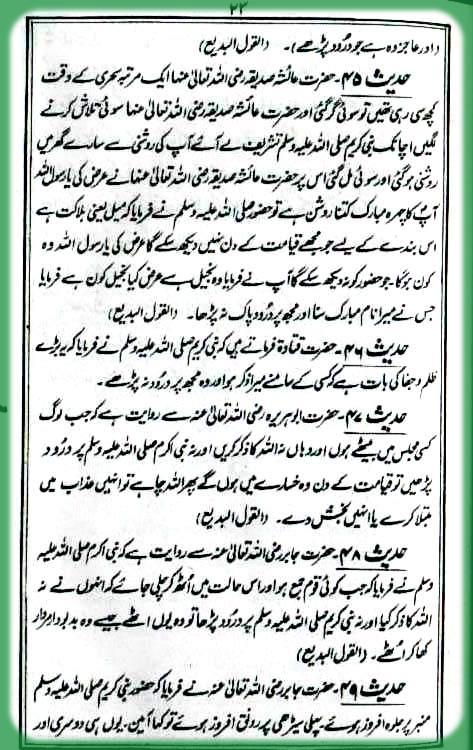 ۲۲
(اور عاجز وہ ہے جو درود پڑھے)۔ (القول البدیع)
حدیث ۴۵۔ حضرت عائشہ صدیقہ رضی اللہ تعالیٰ عنہا ایک مرتبہ سحری کے وقت
کچھ سی رہی تھیں تو سوئی گر گئی اور حضرت عائشہ صدیقہ رضی اللہ تعالیٰ عنہا سوئی تلاش کرنے
لگیں اچانک نبی کریم صلی اللہ علیہ وسلم تشریف لے آئے آپ کی روشنی سے سارے گھر میں
روشنی ہو گئی اور سوئی مل گئی اس پر حضرت عائشہ صدیقہ رضی اللہ تعالیٰ عنہا نے عرض کی یا رسول اللہ
آپ کا چہرہ مبارک کتنا روشن ہے تو حضور صلی اللہ علیہ وسلم نے فرمایا کہ میل یعنی ہلاکت ہے
اس بندے کے لیے جو مجھے قیامت کے دن نہیں دیکھ سکے گا عرض کی یا رسول اللہ وہ
کون ہوگا جو حضور کو نہ دیکھ سکے گا آپ نے فرمایا وہ بخیل ہے عرض کیا بخیل کون ہے فرمایا
جس نے میرا نام مبارک سنا اور مجھ پر درود پاک نہ پڑھا۔ (القول البدیع)
حدیث ۴۶۔ حضرت قتادۃ فرماتے ہیں کہ نبی کریم صلی اللہ علیہ وسلم نے فرمایا کہ یہ بڑے
ظلم و جفا کی بات ہے کہ کسی کے سامنے میرا ذکر ہو اور وہ مجھ پر درود نہ پڑھے۔
حدیث ۴۷۔ حضرت ابوہریرہ رضی اللہ تعالیٰ عنہ سے روایت ہے کہ جب لوگ
کسی مجلس میں بیٹھے ہوں اور وہاں نہ اللہ کا ذکر کریں اور نہ نبی اکرم صلی اللہ علیہ وسلم پر درود
پڑھیں تو قیامت کے دن وہ خسارے میں ہوں گے پھر اللہ چاہے تو انہیں عذاب میں
مبتلا کرے یا انہیں بخش دے۔ (القول البدیع)
حدیث ۴۸۔ حضرت جابر رضی اللہ تعالیٰ عنہ سے روایت ہے کہ نبی اکرم صلی اللہ علیہ
وسلم نے فرمایا کہ جب کوئی قوم جمع ہو اور اس حالت میں اٹھ کر چلی جائے کہ انہوں نے نہ
اللہ کا ذکر کیا اور نہ نبی کریم صلی اللہ علیہ وسلم پر درود پڑھا تو وہ یوں اٹھے جیسے وہ بدبودار مردار
کھا کر اٹھے۔ (القول البدیع)
حدیث ۴۹۔ حضرت جابر رضی اللہ تعالیٰ عنہ نے فرمایا کہ حضور نبی کریم صلی اللہ علیہ وسلم
منبر پر جلوہ افروز ہوئے۔ پہلی سیڑھی پر رونق افروز ہوئے تو کہا آمین۔ یوں ہی دوسری اور